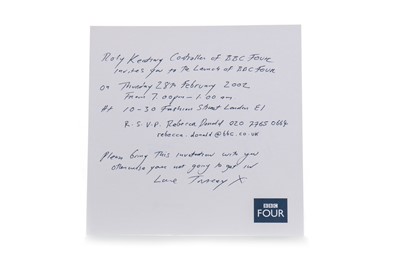 Roly Keating Controller of BBC FOUR
invites you to the Launch of BBC FOUR
on Thursday 28th February 2002
From 7.00pm - 1.00 am
At 10-30 Fashion Street London E1
R.S.V.P. Rebecca Donald 020 7765 0664
rebecca.donald@bbc.co.uk
Please bring this invitation with you
otherwise your not going to get in
Love Tracey X
BBC
FOUR